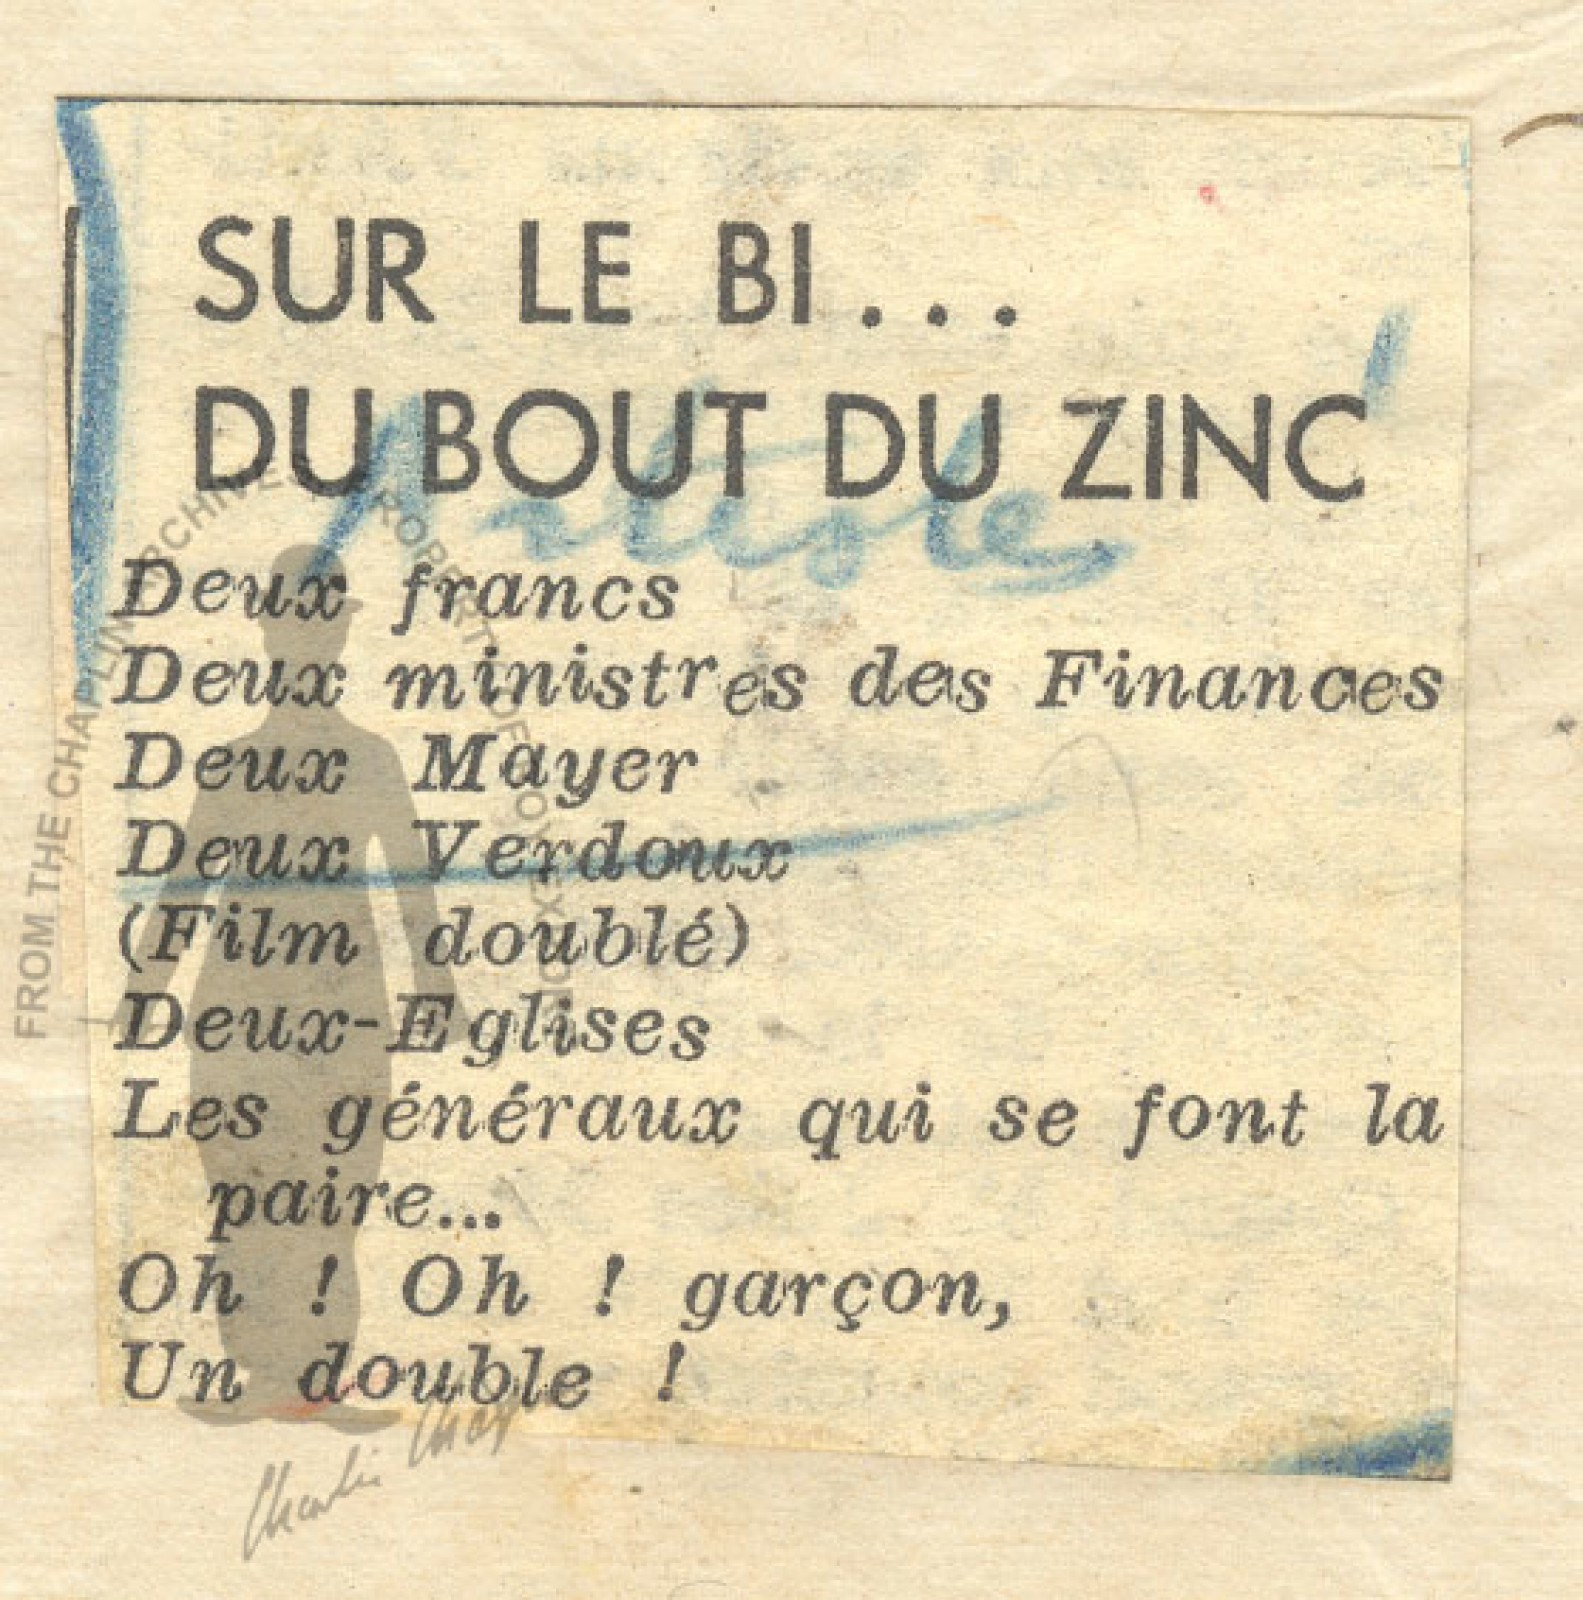 SUR LE BI...
DU BOUT DU ZINC
Artiste
Deux francs
Deux ministres des Finances
Deux Mayer
Deux Verdoux
(Film doublé)
Deux-Eglises
Les généraux qui se font la
paire...
Oh ! Oh ! garçon,
Un double !
FROM THE CHAPLIN ARCHIVE
PROPERTY OF ROY EXPORT
Charlie Chap